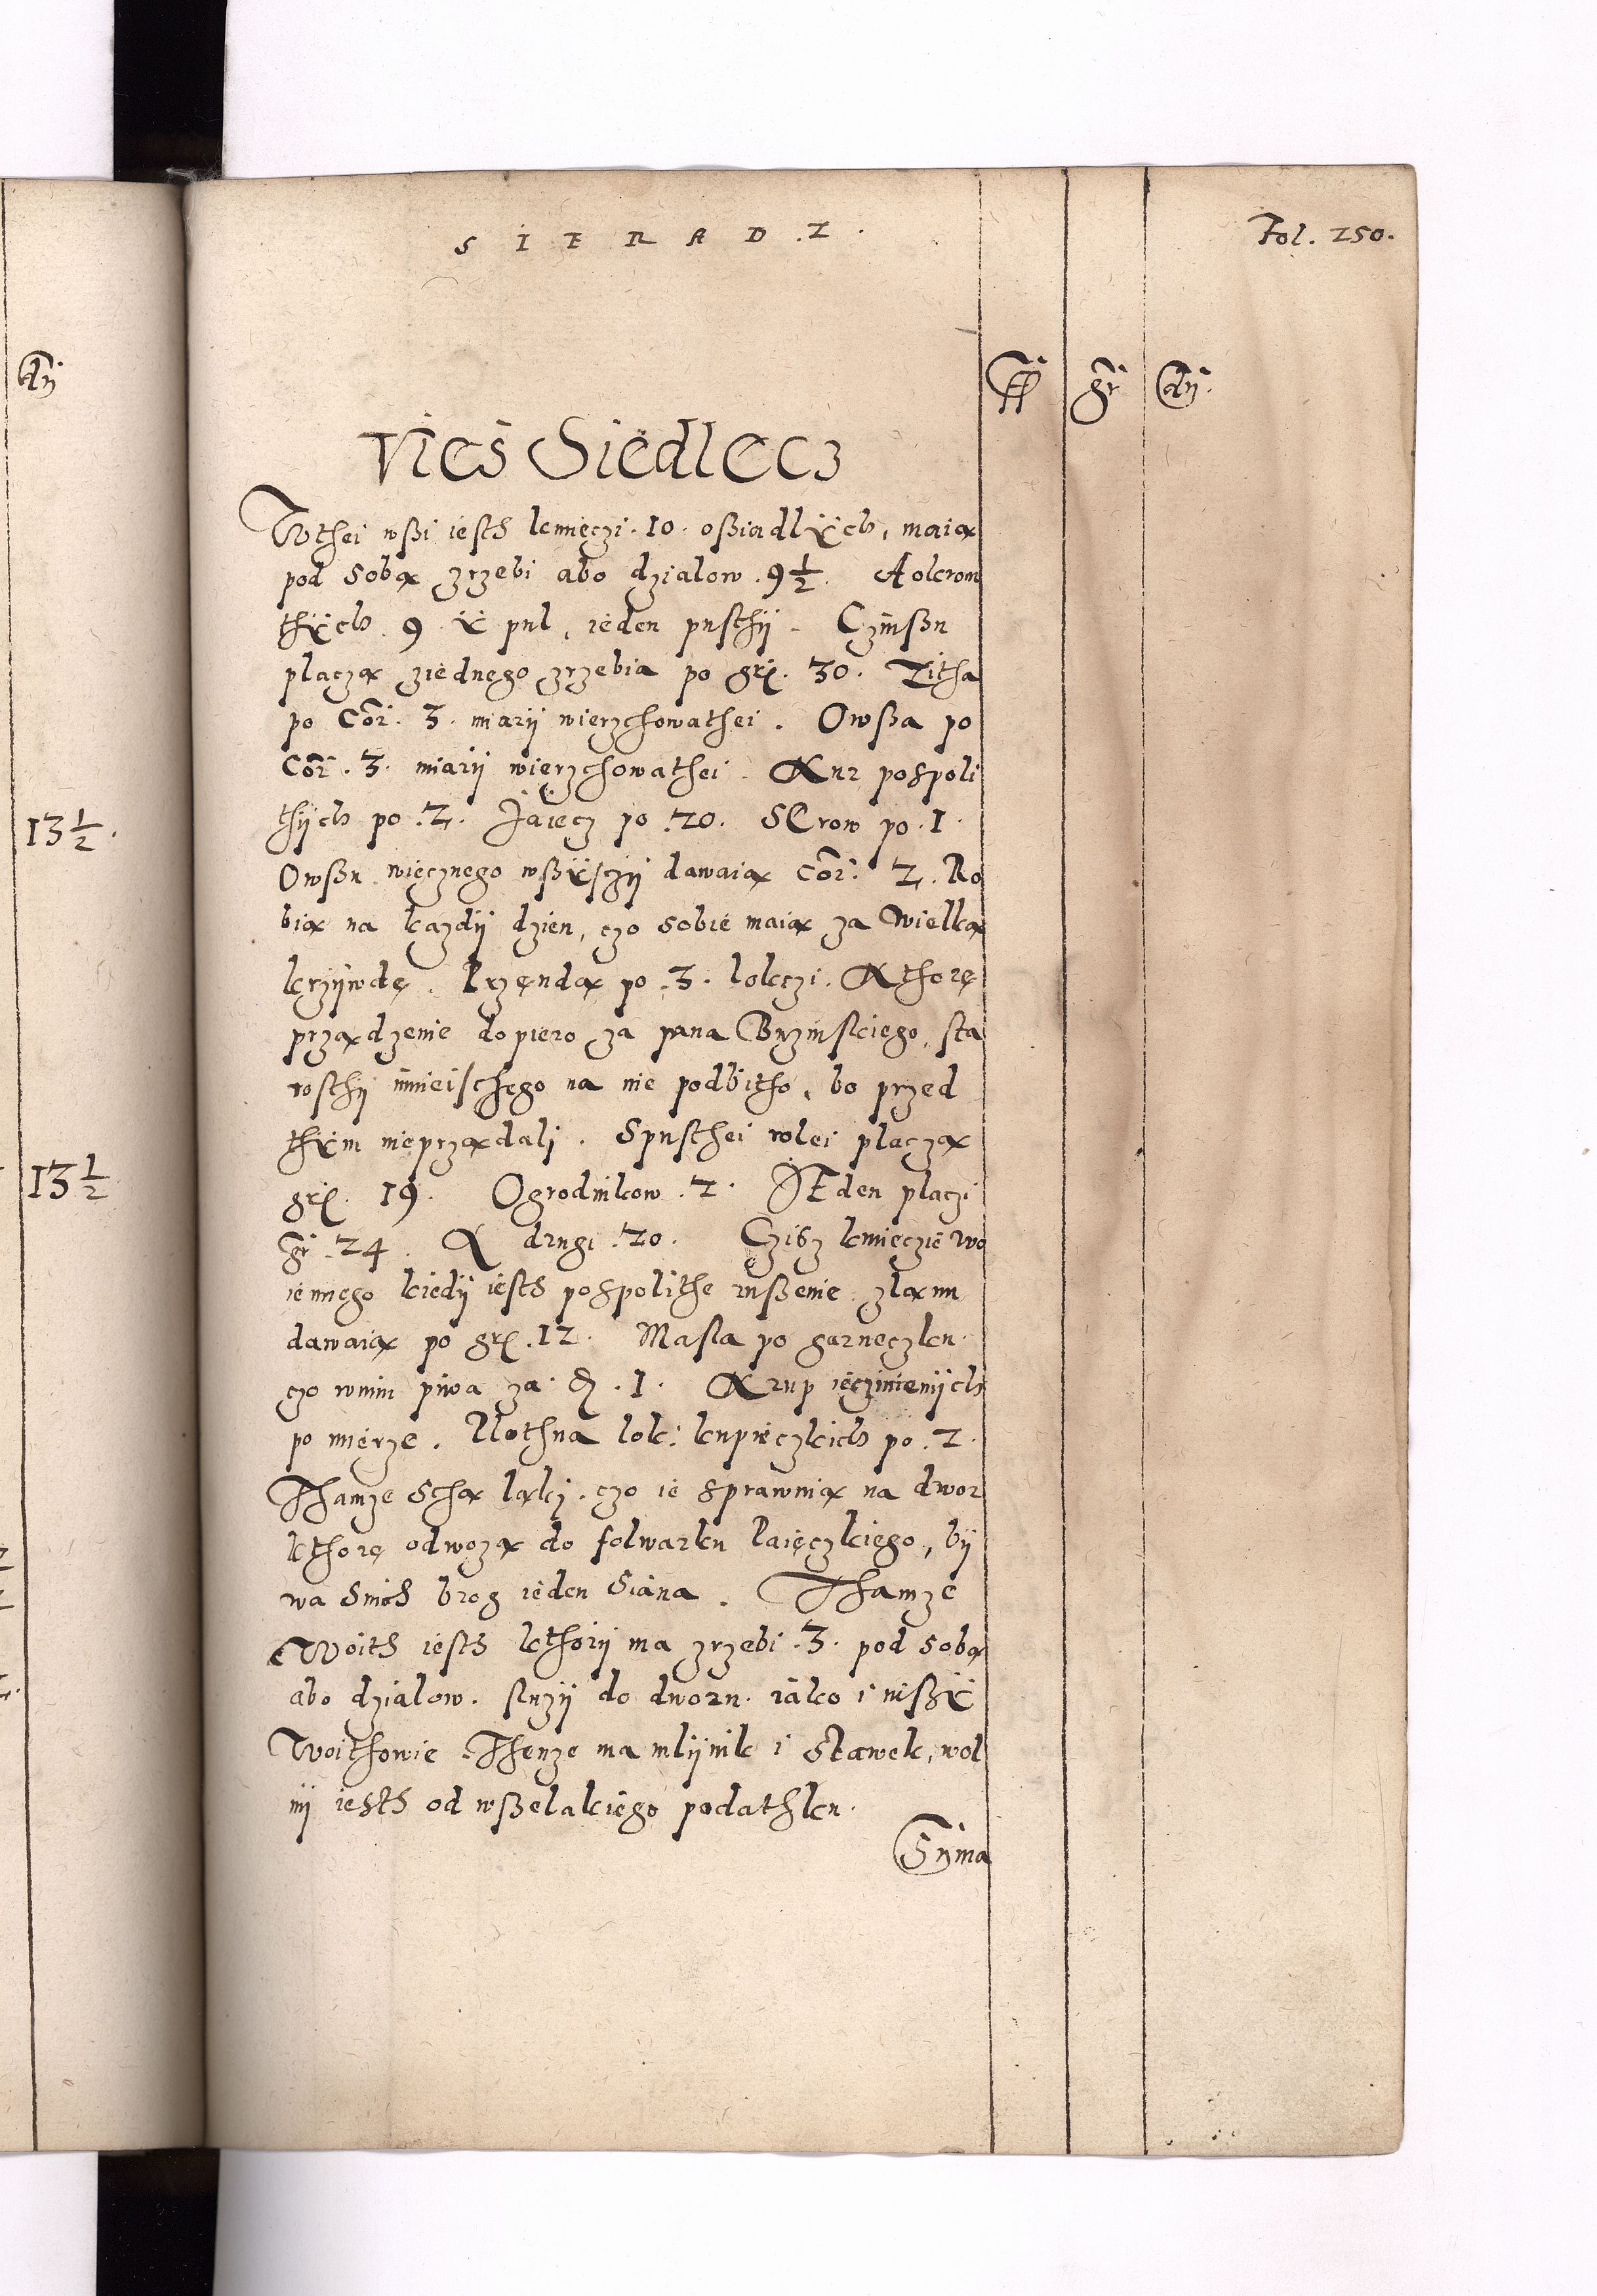 SIERADZ.
Fol. 250.
ff gr dn.
dn
Vies Siedlecz
Wthei wßi iesth kmieczi .10. oßiadlÿch, maią
pod sobą zrzebi abo dzialow .9 1/2. Aokrom
thÿch 9 ÿ pul, ieden pusthÿ. Czinßu
placzą ziednego zrzebia po gr. 30. Zitha
po Cor. 3. miarÿ wierzchowathei. Owßa po
Cor. 3. miarÿ wierzchowathei. Kur pospoli
thÿch po .2. Jaiecz po .20. SErow po .1.
Owßu wiecznego wßÿsczÿ dawaią cor. 2. Ro
bią na kazdÿ dzien, czo sobie maią za wielką
krzÿwdę. Przendą po .3. lokczi. Kthore
prządzenie dopiero za pana Buzinskiego, sta
rosthÿ inieischego na nie podbitho, bo przed
thÿm nieprządali. Spusthei rolei placzą
gr. 19. Ogrodnikow .2. JEden placzi
gr .24. A drugi .20. Czisz kmieczie wo
iennego kiedÿ iesth pospolithe rußenie zlanu
dawaią po gr. 12. Masla po garneczku
czo wnim piwa za .1. Krup ięczmienÿch
po mierze. Plothna lok: kupieczkich po .2.
Thamze Sthą ląki, czo ie sprawuią na dwor
kthore odwozą do folwarku Paieczkiego, bÿ
wa Snich brog ieden Siana. Thamze
Woith iesth kthorÿ ma zrzebi .3. pod sobą
abo dzialow. sluzÿ do dworu iako i inßÿ
Woithowie Thenze ma mlÿnik i Stawek, wol
nÿ iesth od wßelakiego podathku.
Suma
13 1/2.
13 1/2